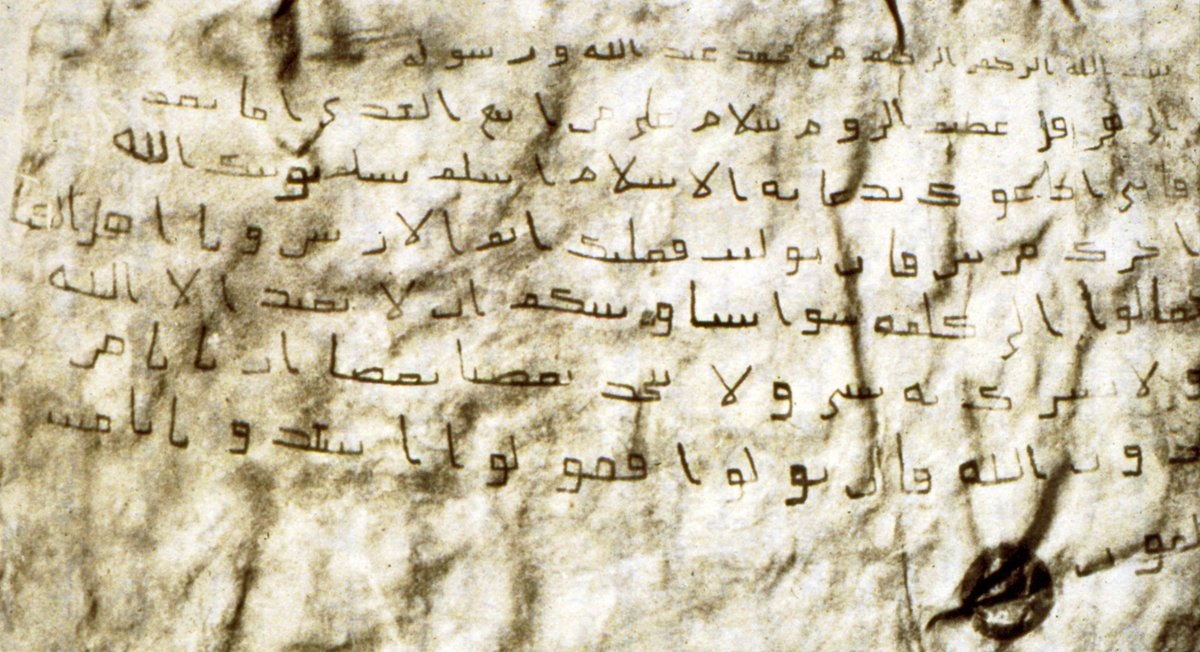 بسم الله الرحمن الرحيم من محمد عبد الله و رسوله
الى هرقل عظيم الروم سلام على من اتبع الهدى اما بعد
فانى ادعوك بدعاية الاسلام اسلم تسلم يوتك الله
اجرك مرتين فان توليت فعليك اثم الاريسين و يا اهل الكتا
ب تعالوا الى كلمة سوا بيننا و بينكم ان لا نعبد الا الله
و لا نشرك به شى و لا يتخذ بعضنا بعضا اربابا من
دون الله فان تولوا فقولوا اشهدوا بانا مسـ
لمون